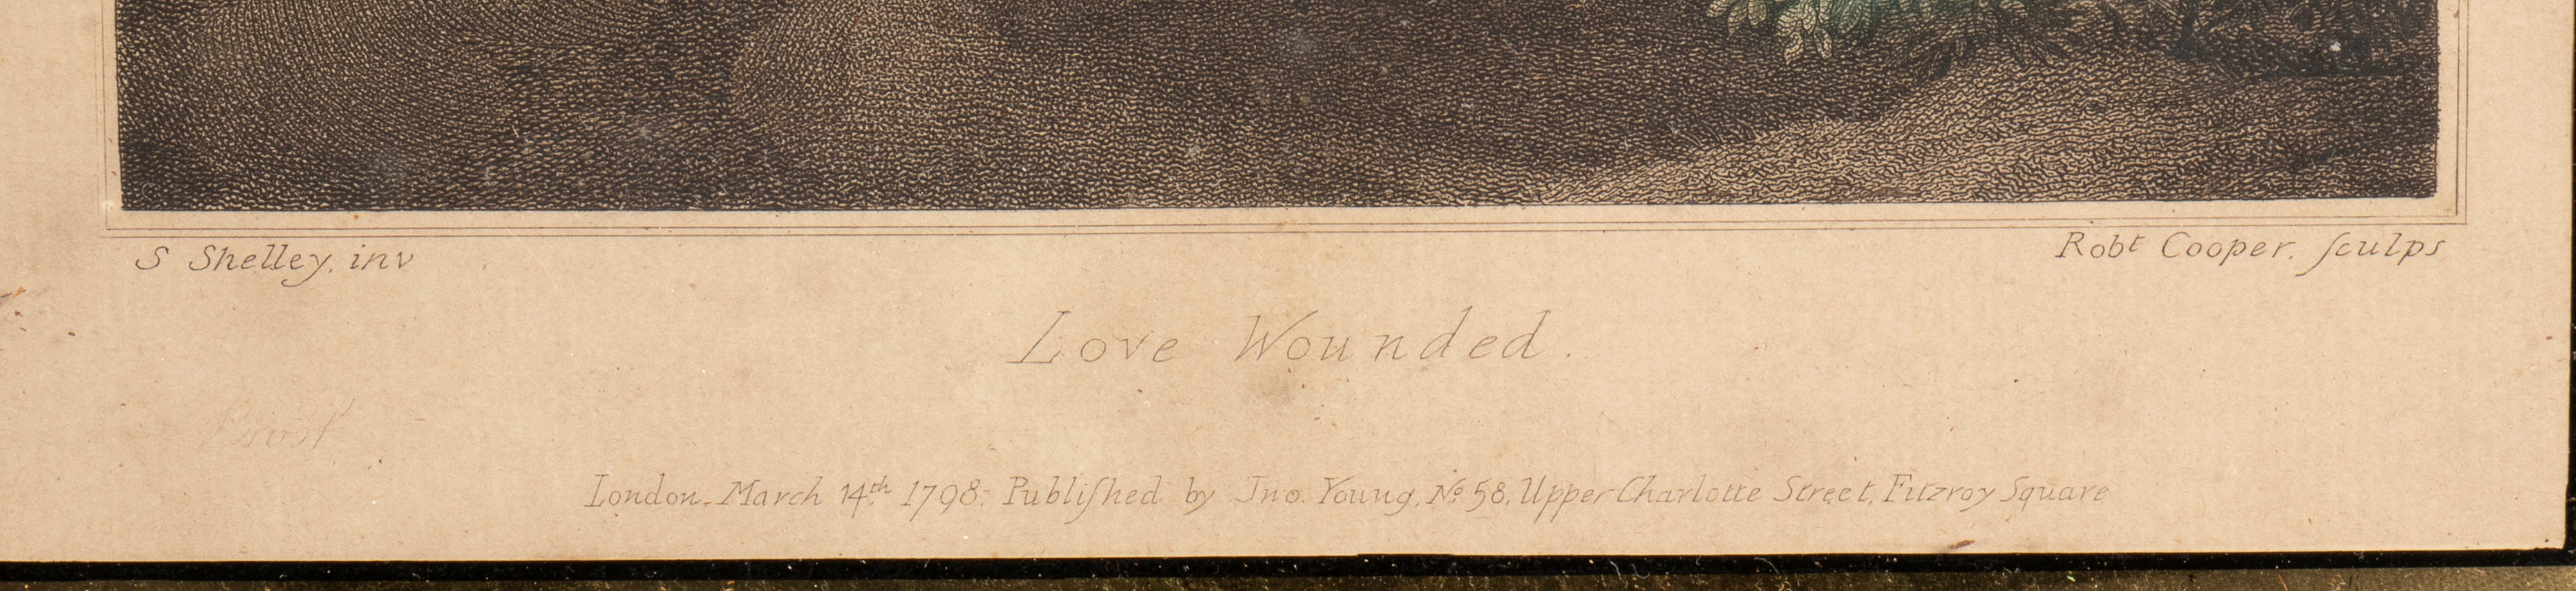 S Shelley. inv
Robt Cooper. ſculps
Love Wounded.
Proof
London. March 14th 1798. Publiſhed by Jno. Young, No 58, Upper Charlotte Street, Fitzroy Square